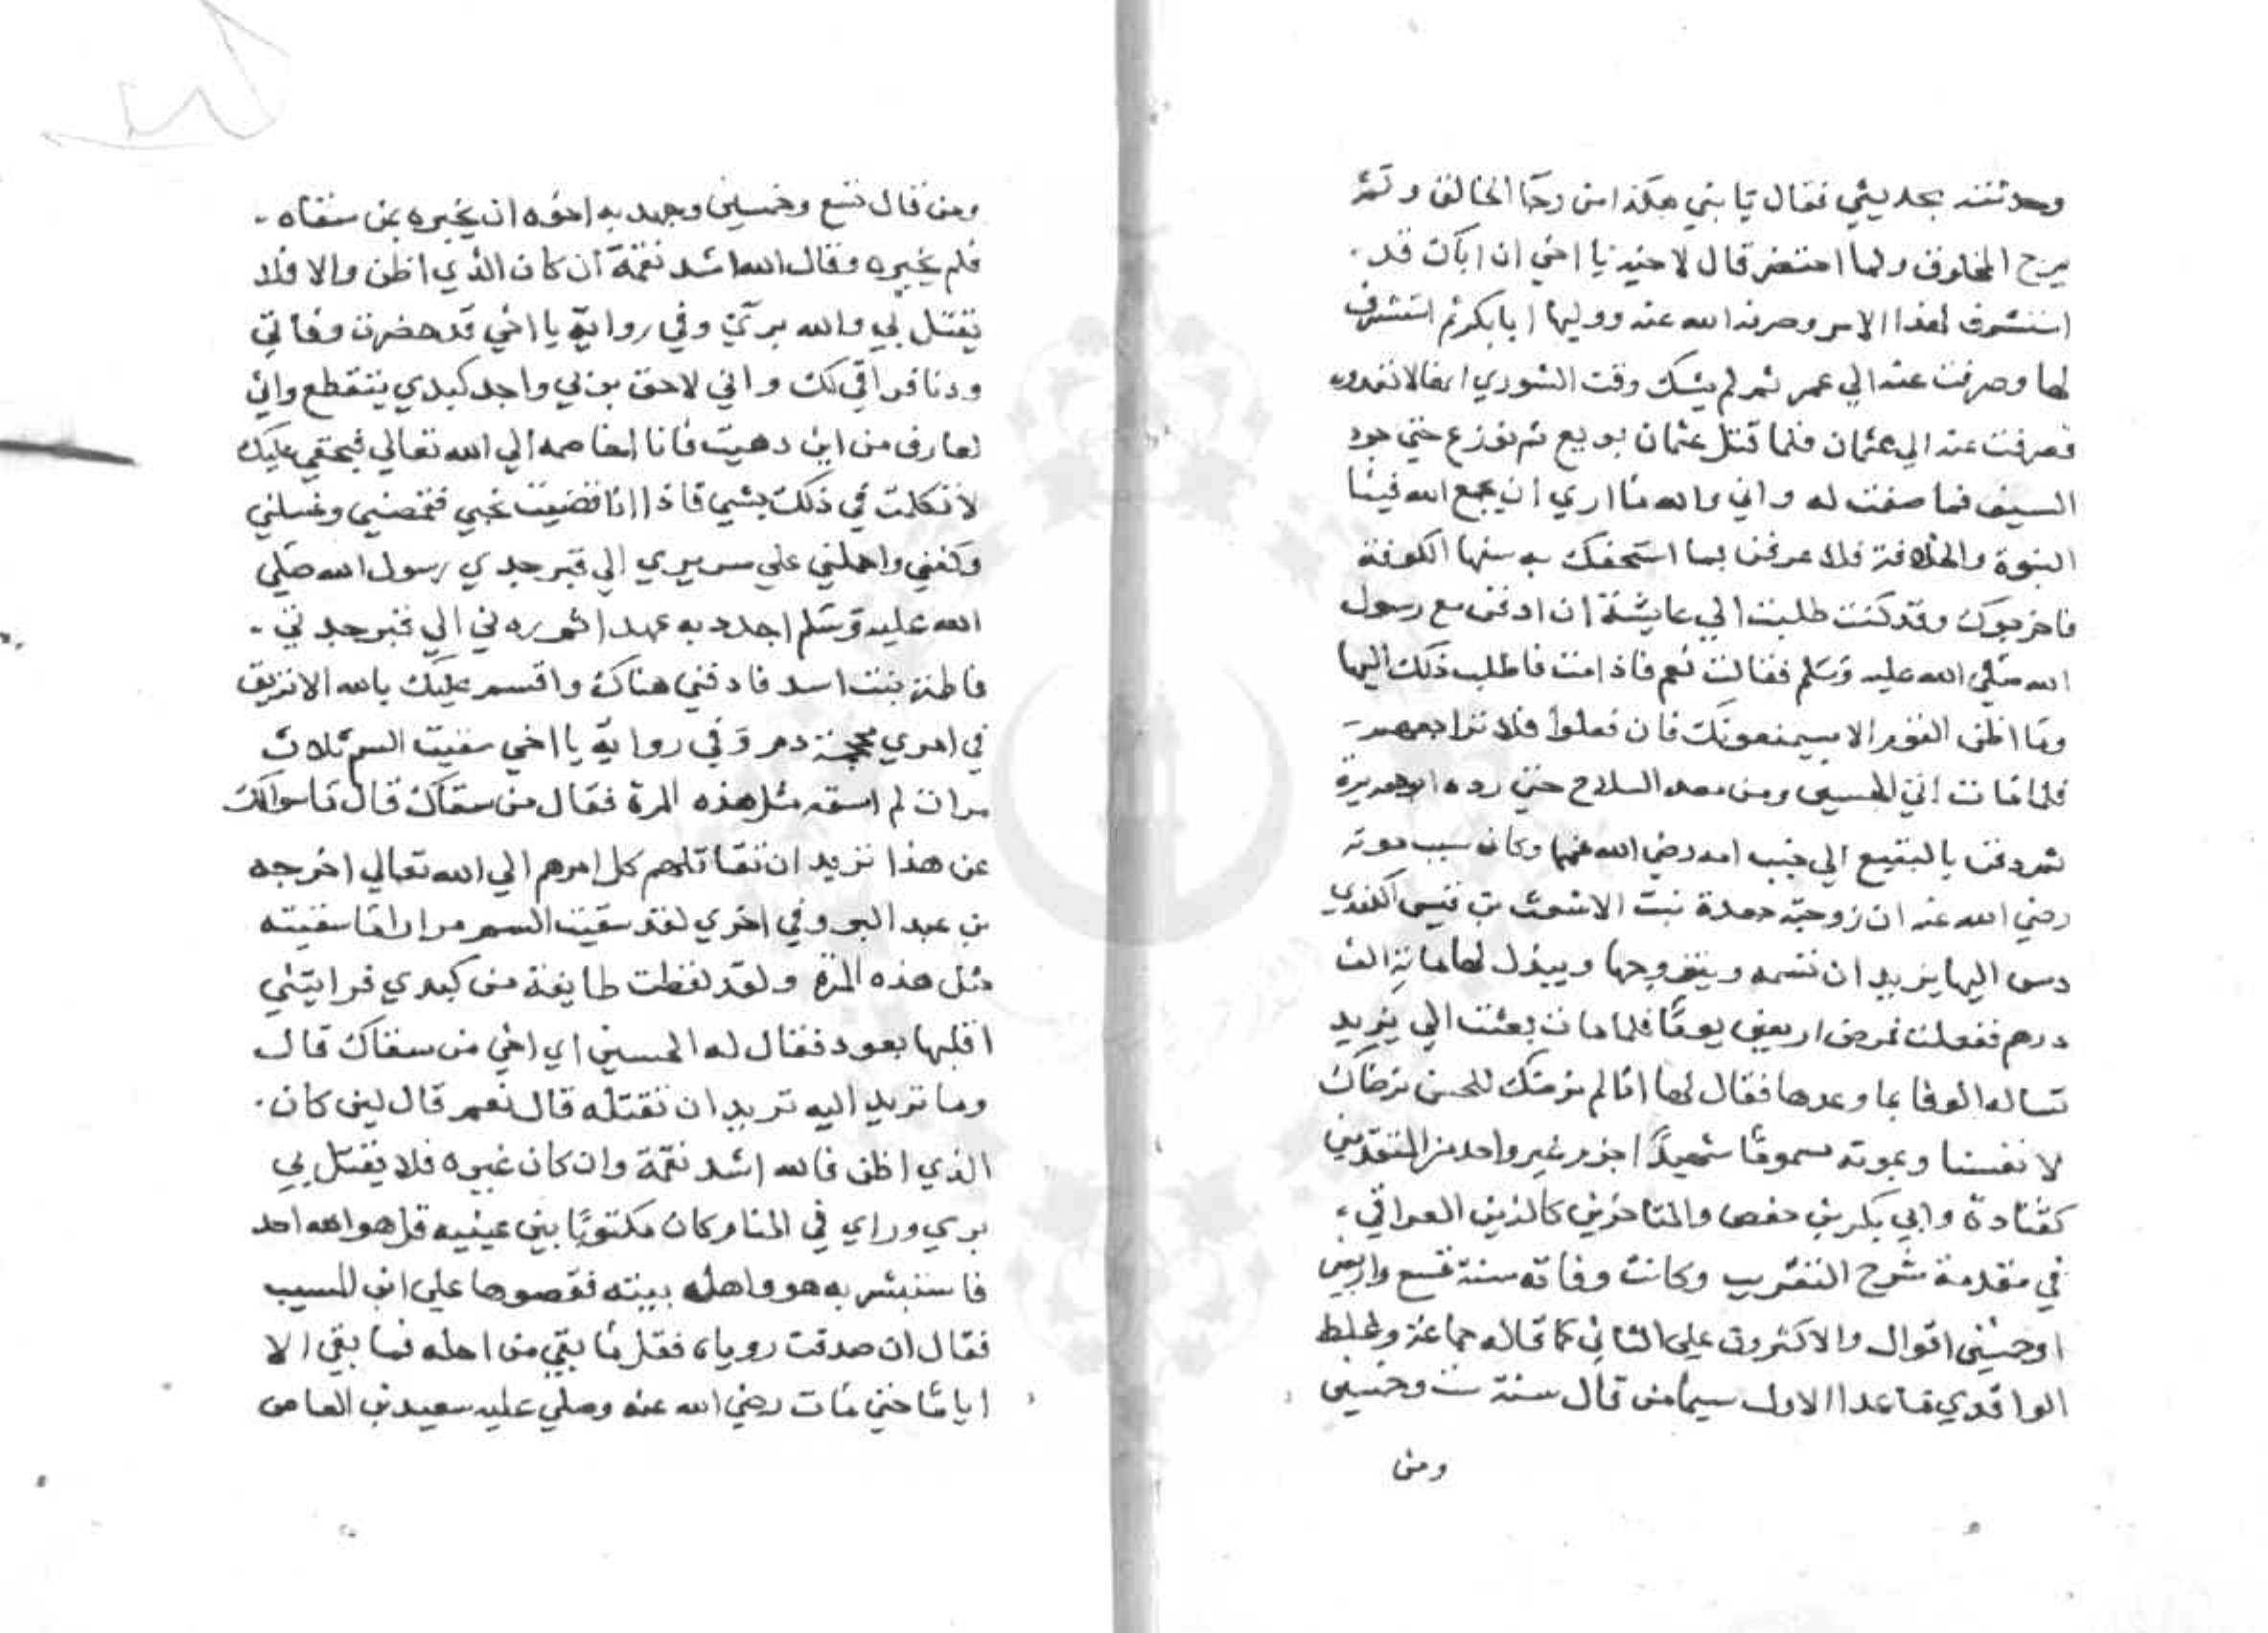 وحدثته بحديثي فقال يا بني هكذا من رجا الخالق ولم
يرج المخلوق ولما احتضر قال لاخيه يا اخي ان اباك قد
استشرف لهذا الامر وصرفه الله عنه ووليها ابا بكر ثم استشرف
لها وصرفت عنه الي عمر ثم لم يشك وقت الشوري انها لا تعدوه
فصرفت عنه الي عثمان فلما قتل عثمان بويع ثم نوزع حتي جرد
السيف فما صفت له واني والله ما اري ان يجمع الله فينا
النبوة والخلافة فلا عرفن بما استخفك به سفها الكوفة
فاخرجوك وقد كنت طلبت الي عايشة ان ادفن مع رسول
الله صلي الله عليه وسلم فقالت نعم فاذا مت فاطلب ذلك اليها
وما اظن القوم الا سيمنعونك فان فعلوا فلا تراجعهم
فلما مات اتي الحسين ومن معه السلاح حتي رده ابو هريرة
ثم دفن بالبقيع الي جنب امه رضي الله عنهما وكان سبب موته
رضي الله عنه ان زوجته جعدة بنت الاشعث بن قيس الكندي
دس اليها يزيد ان تسمه ويتزوجها ويبذل لها ماية الف
درهم ففعلت فمرض اربعين يوما فلما مات بعثت الي يزيد
تساله الوفا بما وعدها فقال لها انا لم نرضك للحسن نرضاك
لانفسنا وبموته مسموما شهيدا جزم غير واحد من المتقدمين
كقتادة وابي بكر بن حفص والمتاخرين كالزين العراقي
في مقدمة شرح التقريب وكانت وفاته سنة تسع واربعين
او خمسين اقوال والاكثرون علي الثاني كما قاله جماعة وغلط
الواقدي ما عدا الاول سيما من قال سنة ست وخمسين
ومن
ومن قال تسع وخمسين وجهد به اخوه ان يخبره بمن سقاه
فلم يخبره وقال الله اشد نقمة ان كان الذي اظن والا فلا
يقتل بي والله بري وفي رواية يا اخي قد حضرت وفاتي
ودنا فراقي لك واني لاحق بربي واجد كبدي يتقطع واني
لعارف من اين دهيت فانا اخاصمه الي الله تعالي فبحقي عليك
لا تكلمت في ذلك بشي فاذا انا قضيت نحبي فقمصني وغسلني
وكفني واحملني علي سريري الي قبر جدي رسول الله صلي
الله عليه وسلم اجدد به عهدا ثم ردني الي قبر جدتي
فاطمة بنت اسد فادفني هناك واقسم عليك بالله الا تريق
في امري محجمة دم وفي رواية يا اخي سقيت السم ثلاث
مرات لم اسقه مثل هذه المرة فقال من سقاك قال ما سوالك
عن هذا تريد ان تقاتلهم كل امرهم الي الله تعالي اخرجه
بن عبد البر وفي اخري لقد سقيت السم مرارا ما سقيته
مثل هذه المرة ولقد لفظت طايفة من كبدي فرايتني
اقلبها بعود فقال له الحسين اي اخي من سقاك قال
وما تريد اليه تريد ان تقتله قال نعم قال لين كان
الذي اظن فالله اشد نقمة وان كان غيره فلا يقتل بي
بري وراي في المنام كان مكتوبا بين عينيه قل هو الله احد
فاستبشر به هو واهل بيته فقصوها علي ابن المسيب
فقال ان صدقت روياه فقل ما بقي من اجله فما بقي الا
اياما حتي مات رضي الله عنه وصلي عليه سعيد بن العاص